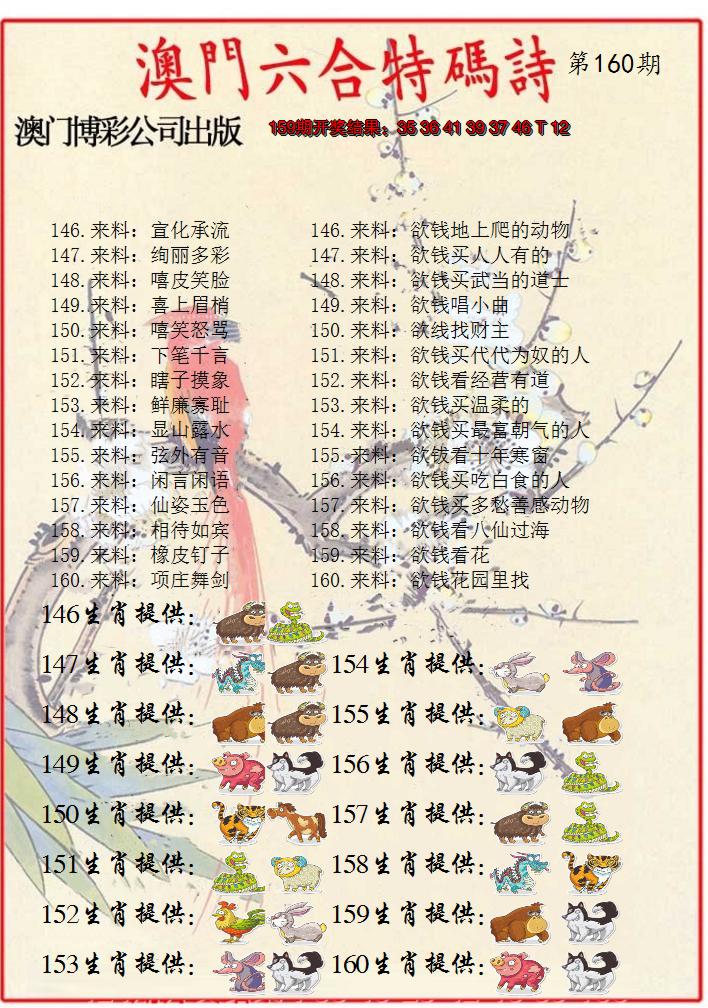 澳門六合特碼詩 第160期
澳门博彩公司出版 159期开奖结果：35 36 41 39 37 46 T 12
146.来料：宣化承流 146.来料：欲钱地上爬的动物
147.来料：绚丽多彩 147.来料：欲钱买人人有的
148.来料：嘻皮笑脸 148.来料：欲钱买武当的道士
149.来料：喜上眉梢 149.来料：欲钱唱小曲
150.来料：嘻笑怒骂 150.来料：欲线找财主
151.来料：下笔千言 151.来料：欲钱买代代为奴的人
152.来料：瞎子摸象 152.来料：欲钱看经营有道
153.来料：鲜廉寡耻 153.来料：欲钱买温柔的
154.来料：显山露水 154.来料：欲钱买最富朝气的人
155.来料：弦外有音 155.来料：欲钱看十年寒窗
156.来料：闲言闲语 156.来料：欲钱买吃白食的人
157.来料：仙姿玉色 157.来料：欲钱买多愁善感动物
158.来料：相待如宾 158.来料：欲钱看八仙过海
159.来料：橡皮钉子 159.来料：欲钱看花
160.来料：项庄舞剑 160.来料：欲钱花园里找
146生肖提供：
147生肖提供： 154生肖提供：
148生肖提供： 155生肖提供：
149生肖提供： 156生肖提供：
150生肖提供： 157生肖提供：
151生肖提供： 158生肖提供：
152生肖提供： 159生肖提供：
153生肖提供： 160生肖提供：